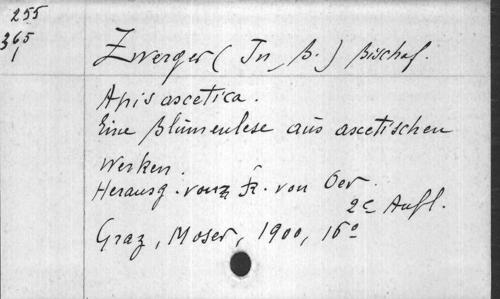 255
365
1
Zwerger (Jn, B.) Bischof.
Apis ascetica.
Eine Blumenlese aus ascetischen
Werken.
Herausg. von Fr. von Oer.
2e Aufl.
Graz, Moser, 1900, 16°